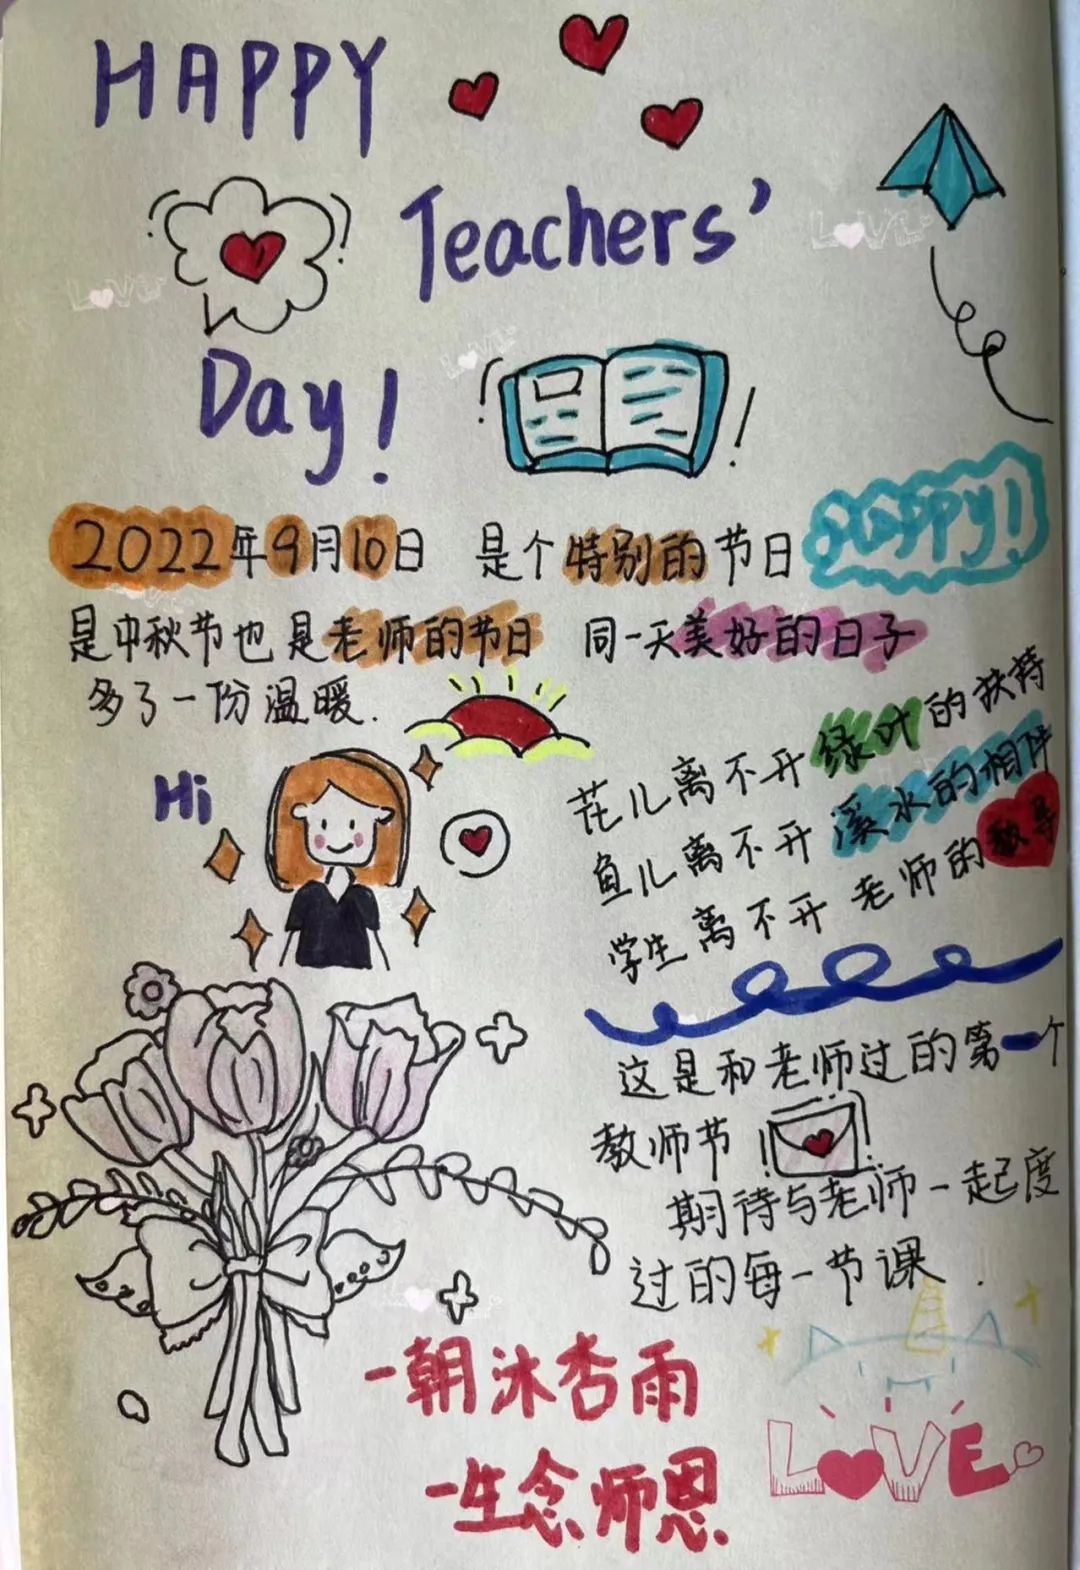 HAPPY
Teachers'
Day!
2022年9月10日 是个特别的节日
HAPPY!
是中秋节也是老师的节日 同一天美好的日子
多了一份温暖.
Hi
花儿离不开绿叶的扶持
鱼儿离不开溪水的相伴
学生离不开老师的教导
这是和老师过的第一个
教师节
期待与老师一起度
过的每一节课.
一朝沐杏雨
一生念师恩
LOVE
LOVE
LOVE
LOVE